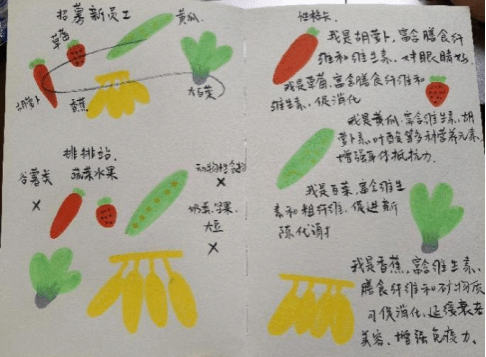 招募新员工
黄瓜
草莓
胡萝卜
香蕉
大白菜
排排站
蔬菜水果
谷薯类
×
动物性食物
×
奶类、坚果、
大豆
×
我是胡萝卜,富含膳食纤
维和维生素、对眼睛好
我是草莓,富含膳食纤维和
维生素、促消化
我是黄瓜,富含维生素、胡
萝卜素、叶酸等多种营养元素,
增强身体抵抗力.
我是白菜,富含维生
素和粗纤维、促进新
陈代谢
我是香蕉,富含维生素、
膳食纤维和矿物质
可促消化、延缓衰老
美容、增强免疫力.